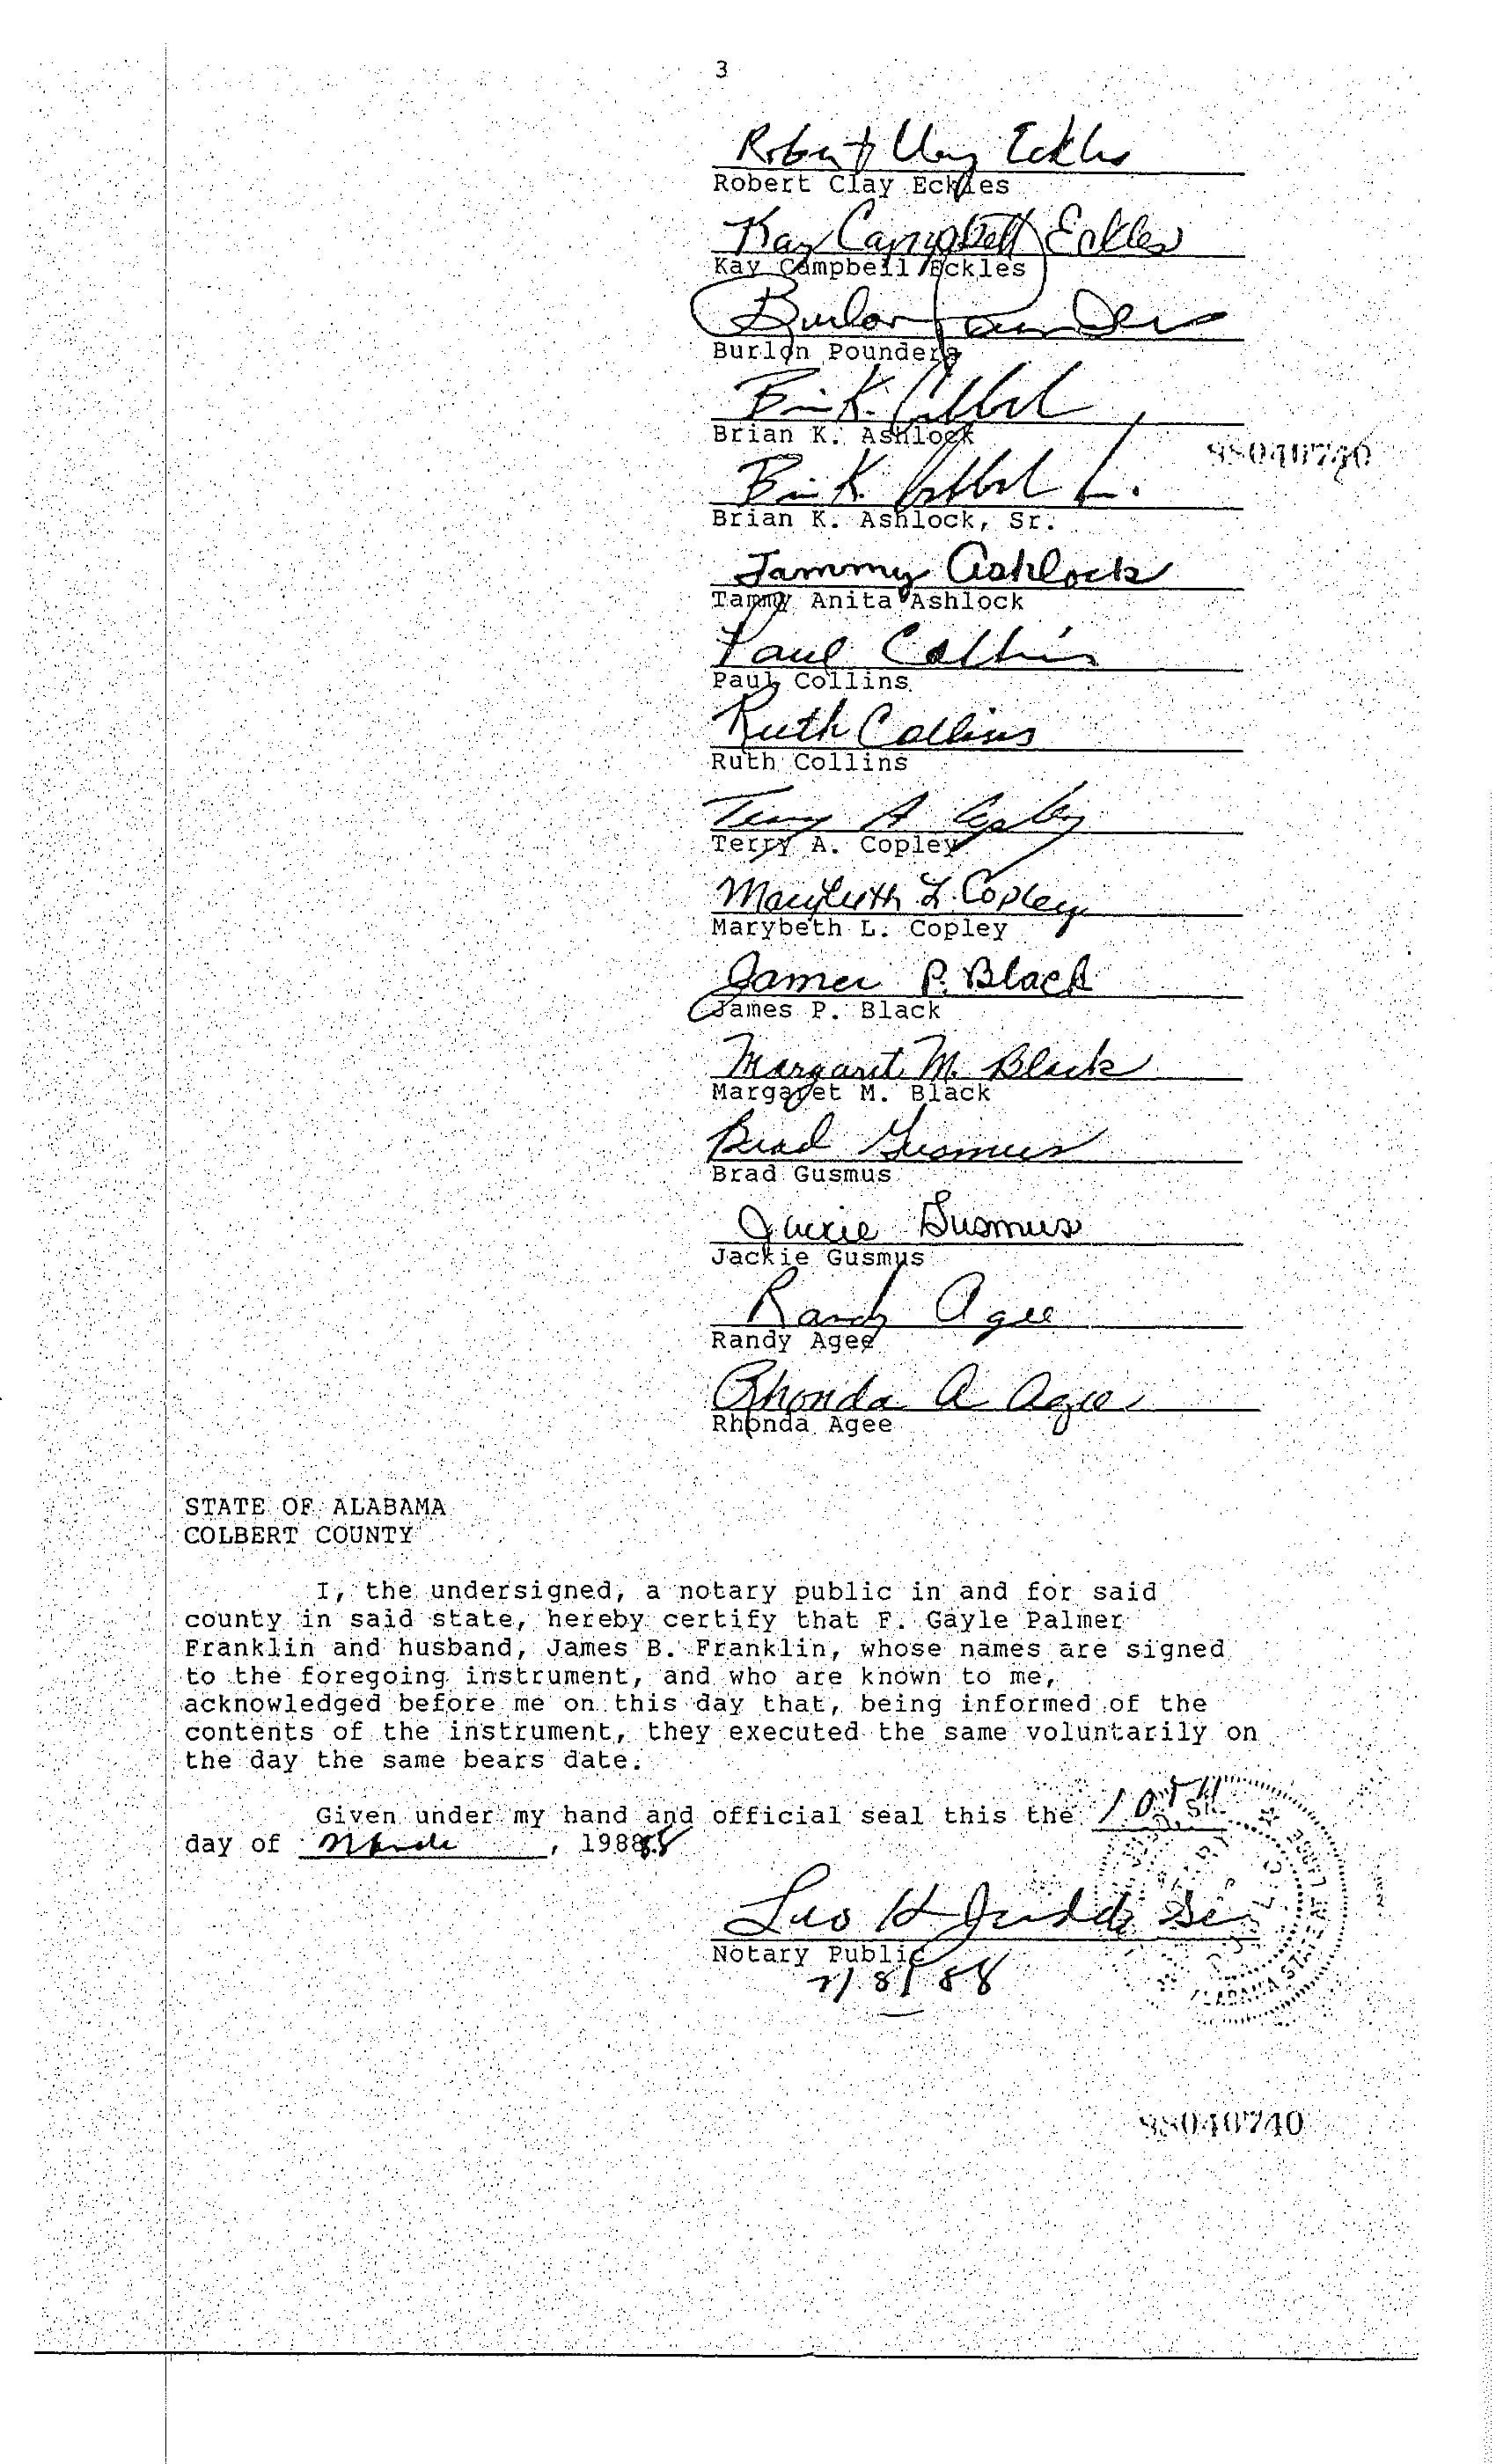 3
Robert Clay Eckles
Robert Clay Eckles
Kay Campbell Eckles
Kay Campbell Eckles
Burlon Pounders
Burlon Pounders
Brian K. Ashlock
8040740
Brian K. Ashlock, Sr.
Tammy Ashlock
Tammy Anita Ashlock
Paul Collins
Paul Collins
Ruth Collins
Ruth Collins
Terry A Copley
Terry A. Copley
Marybeth L. Copley
Marybeth L. Copley
James P. Black
James P. Black
Margaret M. Black
Margaret M. Black
Brad Gusmus
Brad Gusmus
Jackie Gusmus
Jackie Gusmus
Randy Agee
Randy Agee
Rhonda A Agee
Rhonda Agee
STATE OF ALABAMA
COLBERT COUNTY
I, the undersigned, a notary public in and for said
county in said state, hereby certify that F. Gayle Palmer
Franklin and husband, James B. Franklin, whose names are signed
to the foregoing instrument, and who are known to me,
acknowledged before me on this day that, being informed of the
contents of the instrument, they executed the same voluntarily on
the day the same bears date.
Given under my hand and official seal this the 10th
day of March, 1988
Notary Public
88040740